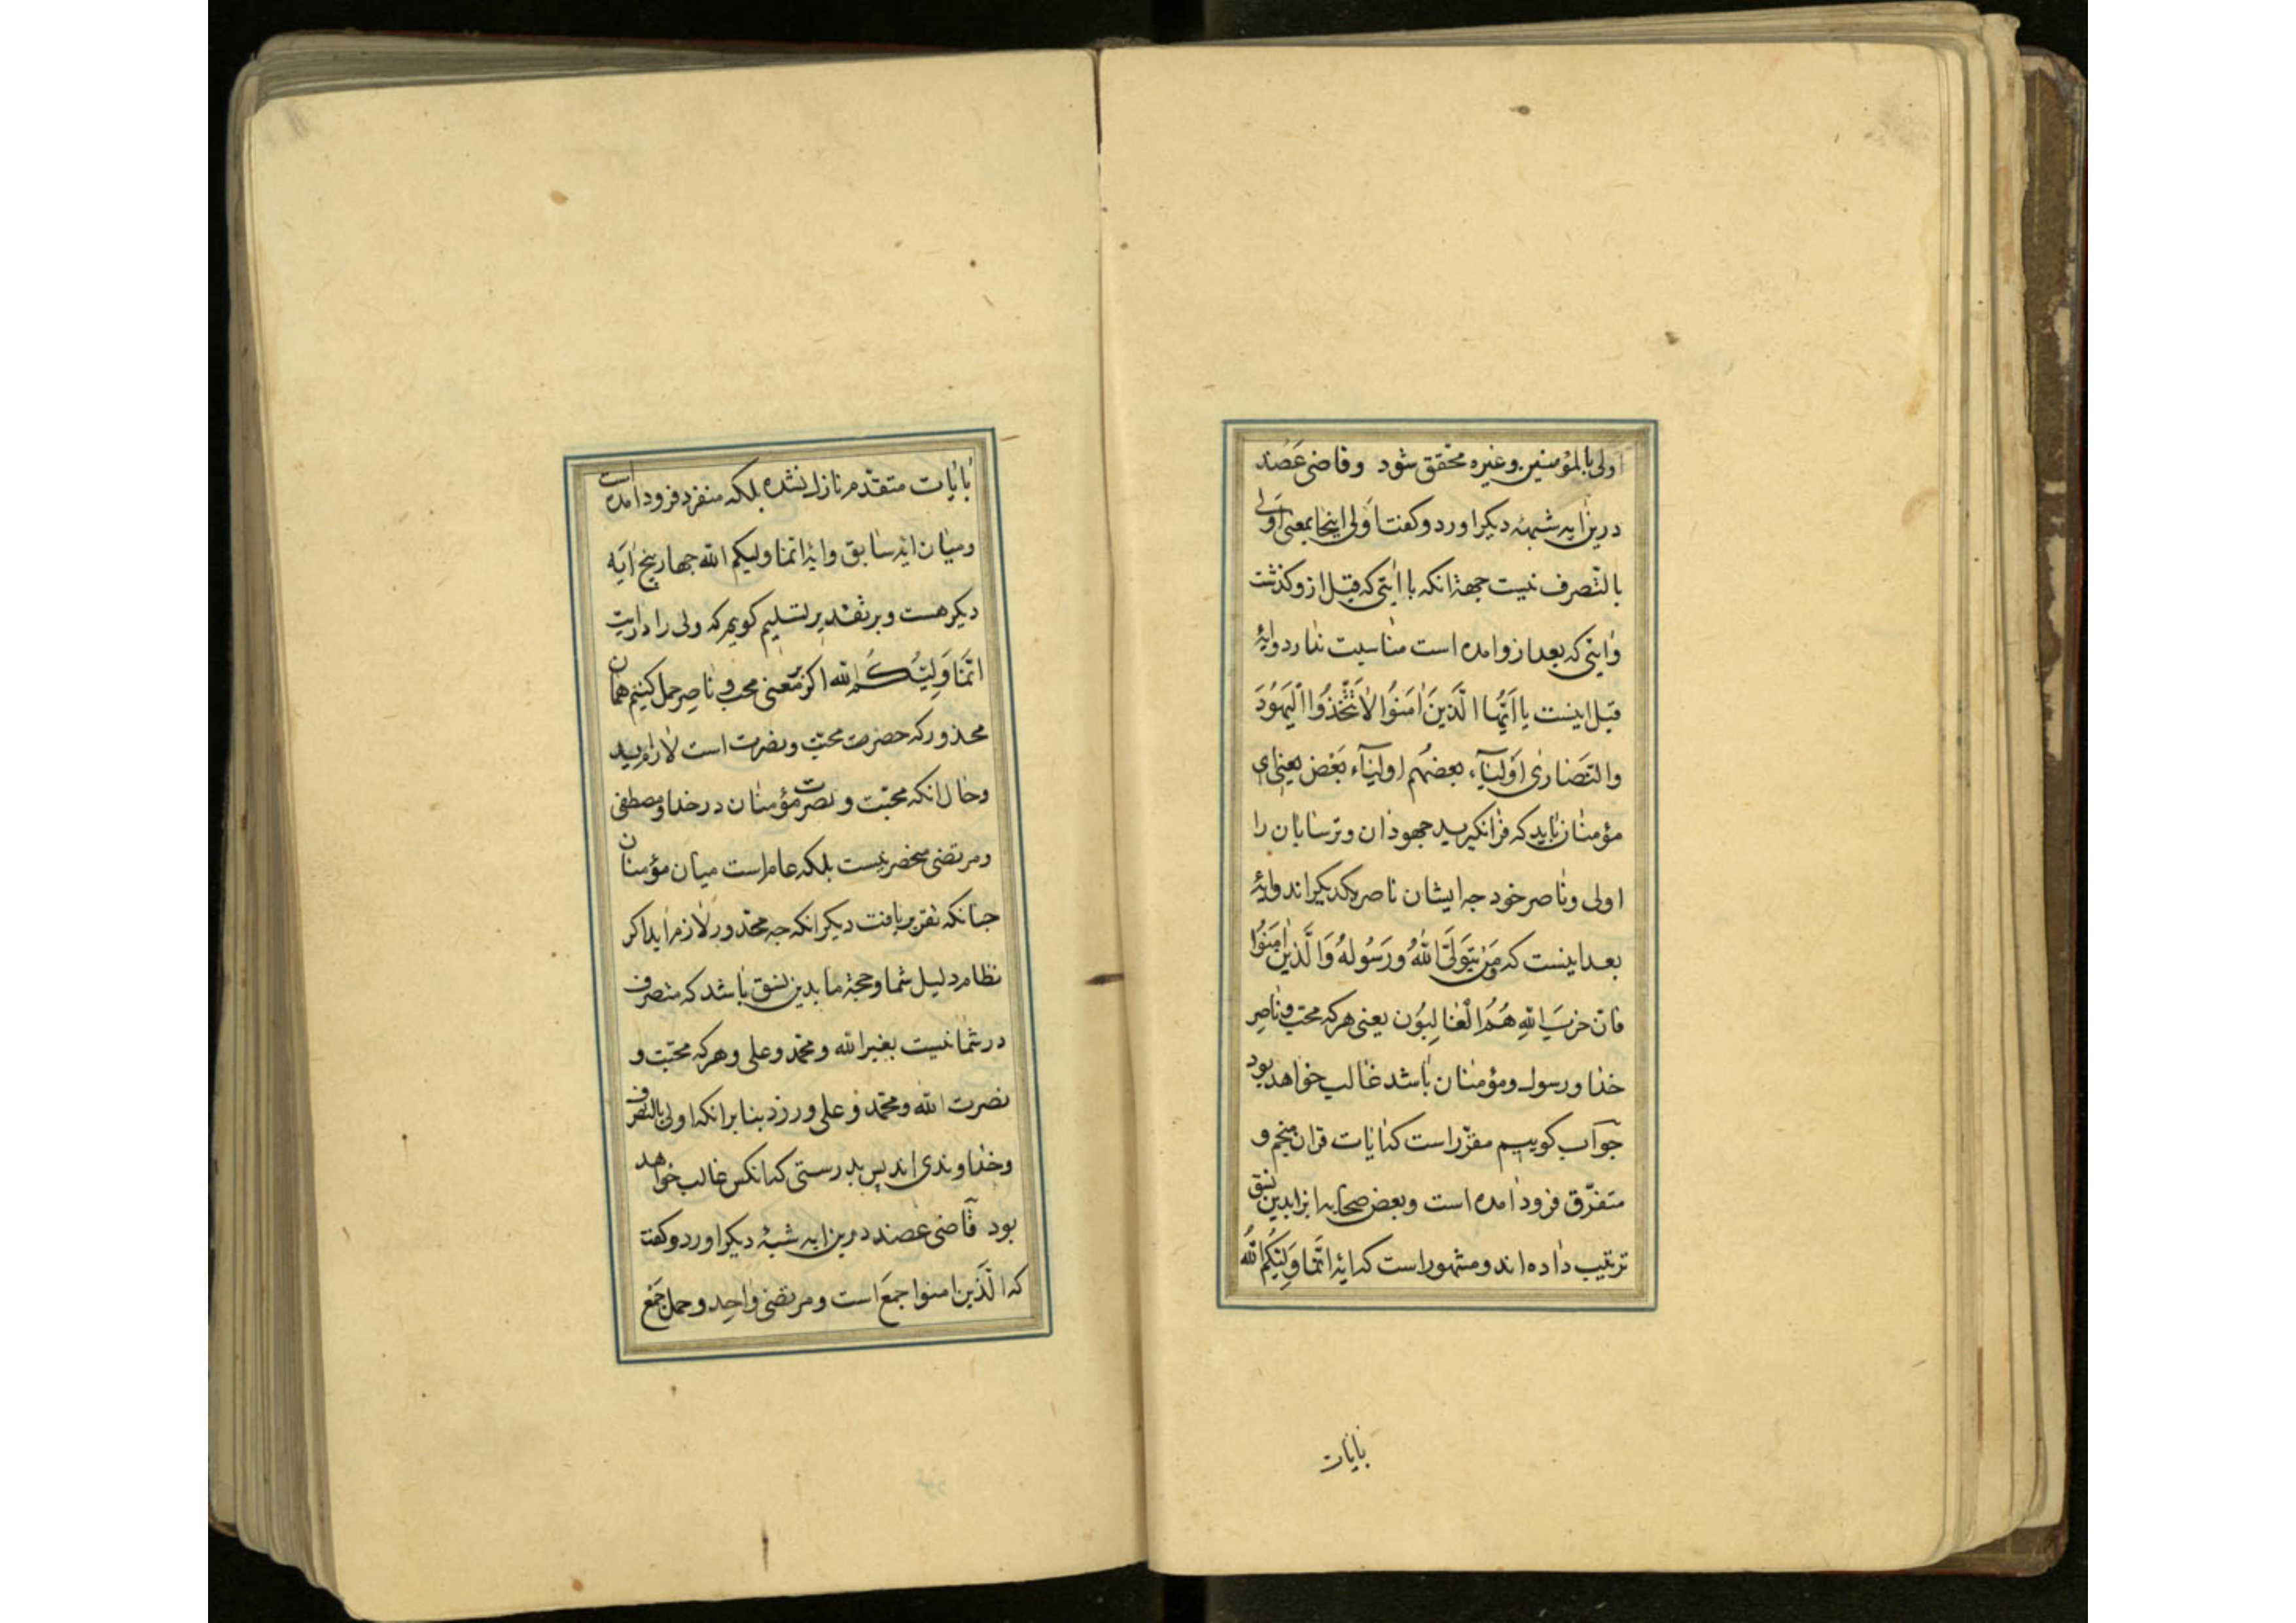 اولی بالمؤمنین وغیره محقق شود وقاضی عضد
درین ایه شبهه دیکر اورد وکفت اولی اینجا بمعنی اولی
بالتصرف نیست جهة انکه با ایتی که قبل ازو کذشت
وایتی که بعد ازو امده است مناسبت ندارد وایهٔ
قبل اینست یا اَیُّهَا الَّذینَ اٰمَنُوا لاٰتَتَّخِذُوا الْیَهُودَ
والنَّصٰاریٰ اَوْلیٰآءَ بعضهُم اولیٰآء بَعْض یعنی ای
مؤمنان باید که فرانکیرید جهودان وترسایان را
اولی وناصر خود جه ایشان ناصر یکدیکراند وایهٔ
بعد اینست که وَمَن یَتَوَلَّ اللهُ ورَسُولهُ وَالَّذینَ اٰمَنُوا
فانّ حزبَ اللهِ هُمُ الْغٰالِبُون یعنی هرکه محبّ وناصِر
خدا ورسول ومؤمنان باشد غالب خواهد بود
جوآب کوییم مقرّر است که ایات قران منجم و
متفرّق فرود امده است وبعض صحابه انرا بدین نسق
ترتیب داده اند ومشهور است که ایهٔ انَّمٰا وَلِیّکُم اللهُ
بایات
بایات متقدّم نازل نشده بلکه منفرد فرود امده است
ومیان ایهٔ سابق وایهٔ انّما ولیکم الله جهار پنج ایَه
دیکر هست وبر تقدیر تسلیم کوییم که ولی را در ایت
انّمٰا وَلِیُّکُمُ الله اکر بمعنی محب وناصِر حمل کنیم همان
محذور که حضرت محبّت ونصرت است لازم اید
وحال انکه محبّت ونصرت مؤمنان در خدا ومصطفی
ومرتضی منحصر نیست بلکه عام است میان مؤمنان
جنانکه تقریر یافت دیکر انکه جه محذور لازم اید اکر
نظام دلیل شما وحجة ما بدین نسق باشد که متصرف
در شما نیست بغیر الله ومحمّد وعلی وهرکه محبّت و
نصرت الله ومحمّد وعلی ورزد بنا بر انکه اولی بالتصرف
وخداوندی اند پس بدرستی که انکس غالب خواهد
بود قاضی عضد درین ایه شبهٔ دیکر اورد وکفت
که الَّذین امنوا جمع است ومرتضی واحِد وحمل جَمع